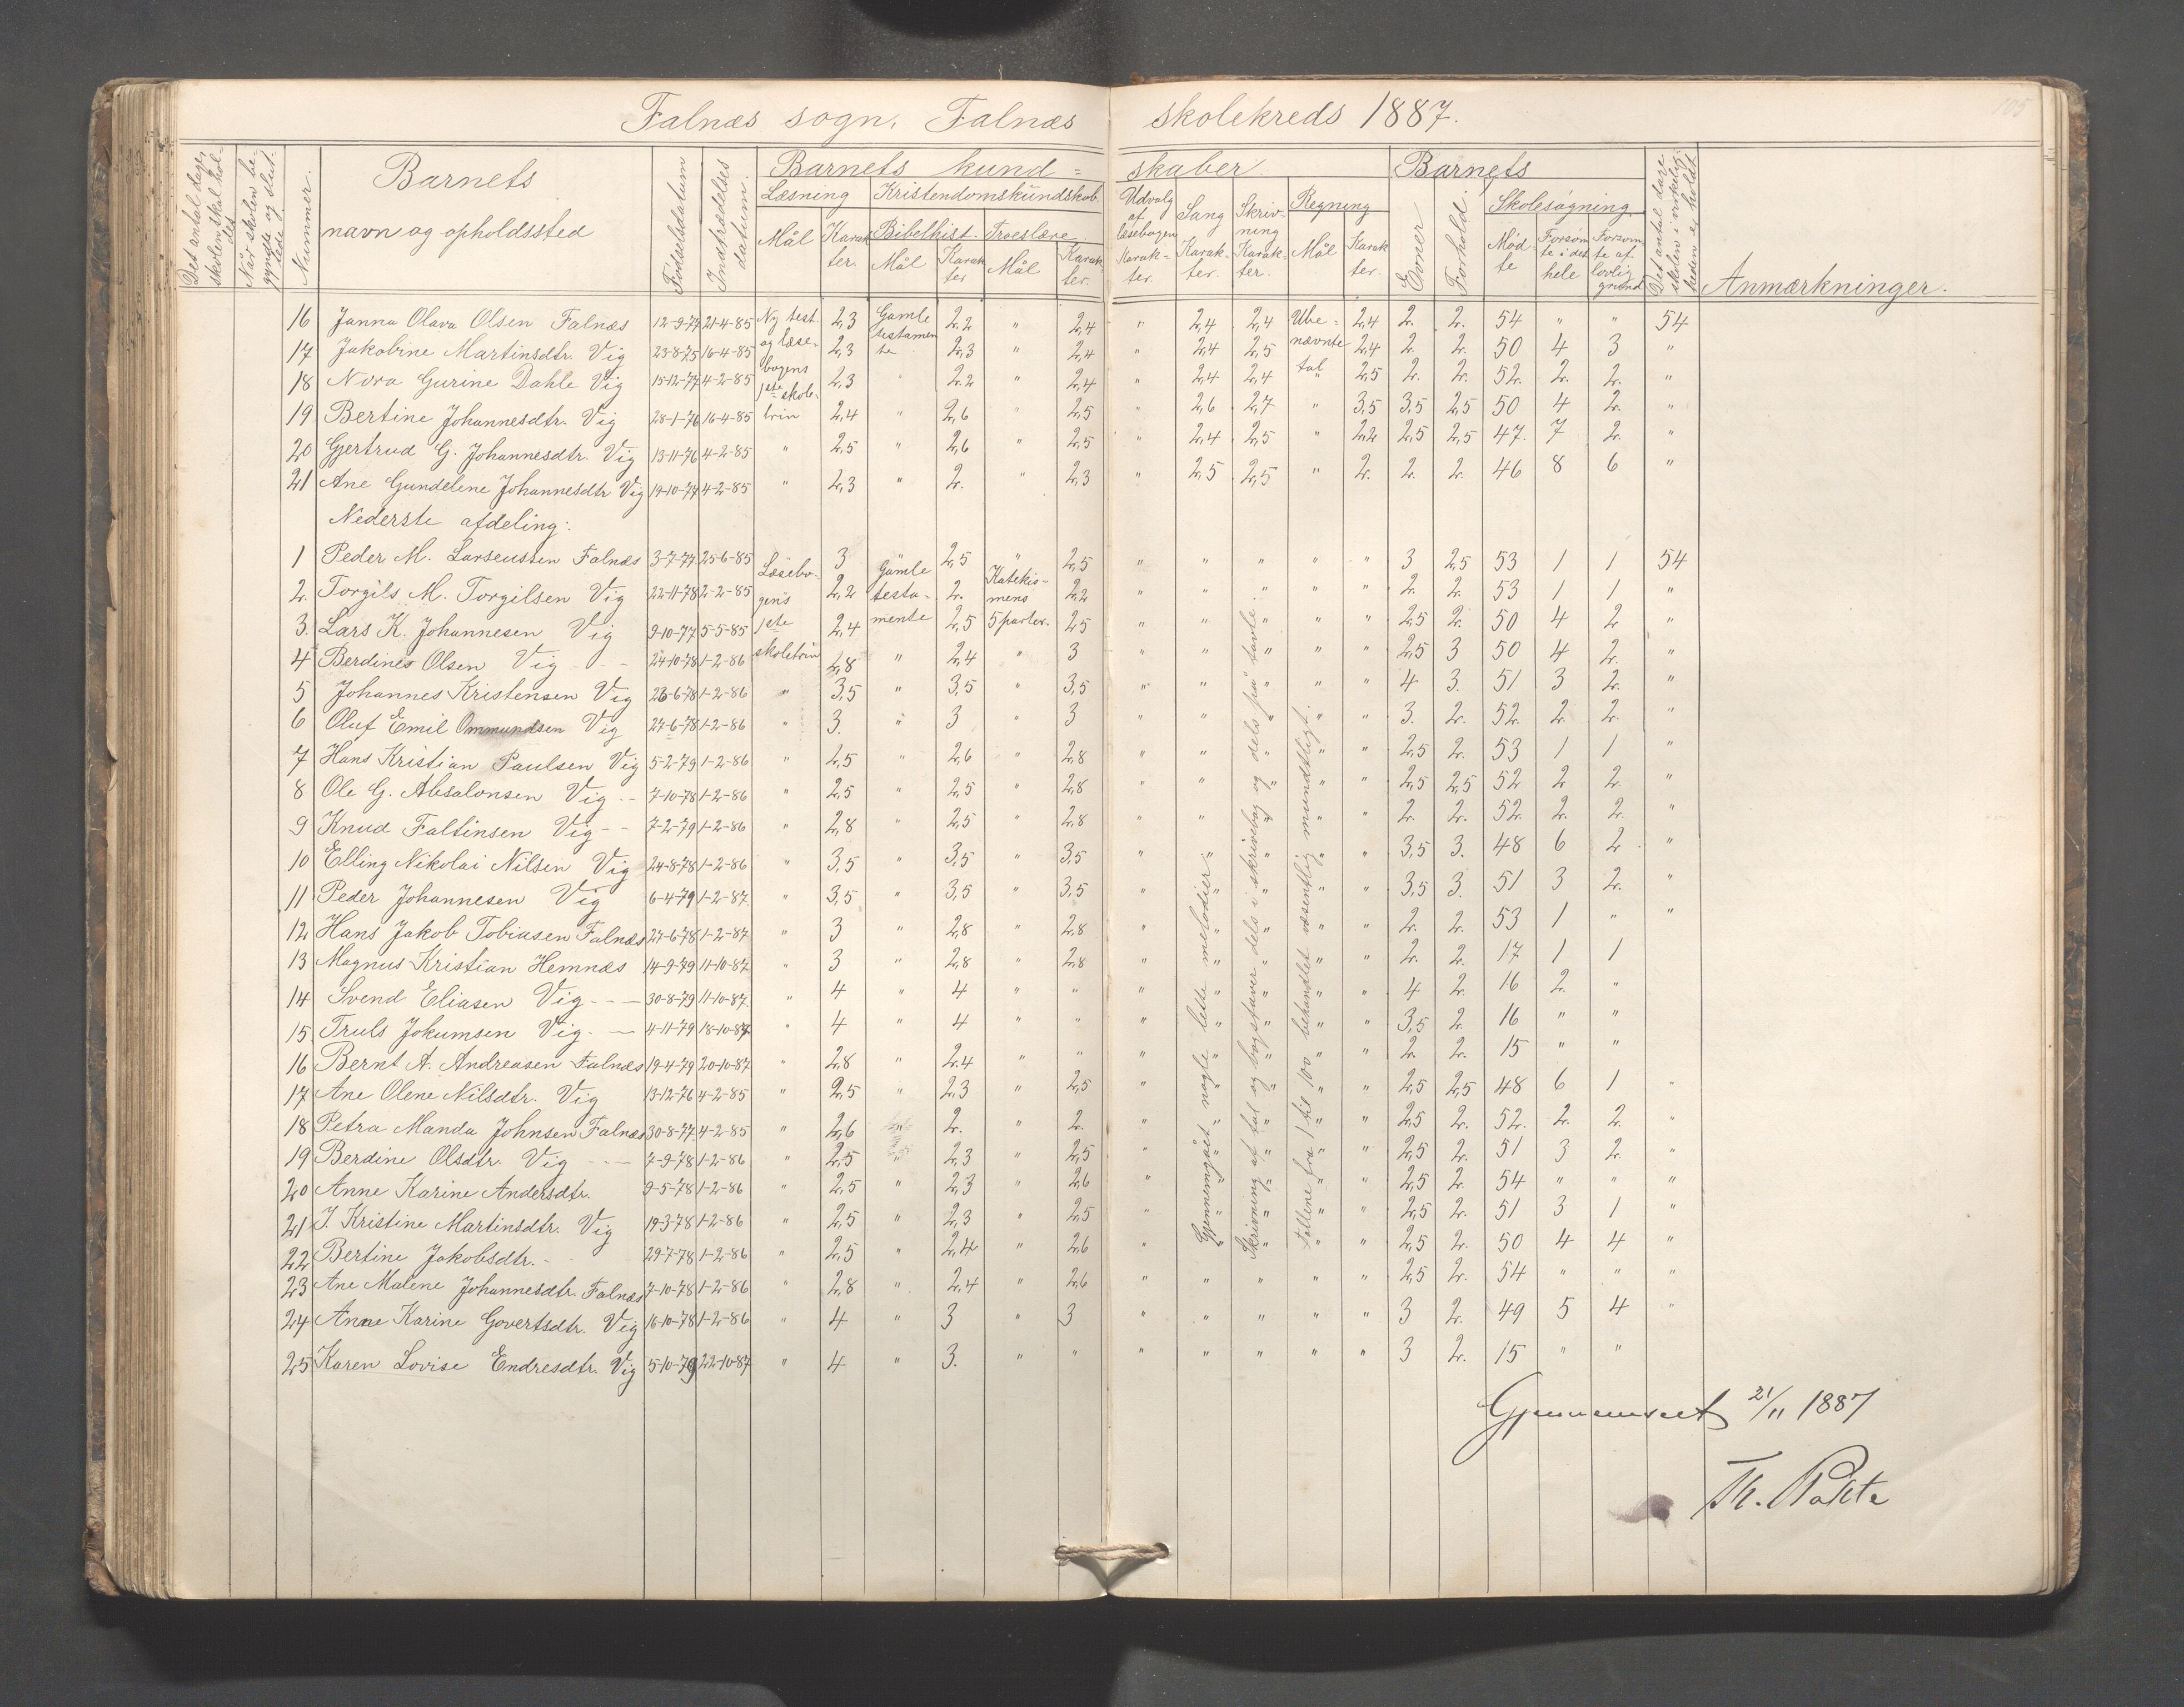 105
Falnæs sogn, Falnæs skolekreds 1887.
Det antal dage, skolen skal holdes
Når skolen begyndte og sluttede
Nummer.
Barnets navn og opholdssted
Fødselsdatum
Indtrædelses datum.
Barnets kundskaber.
Læsning
Mål
Karakter.
Kristendomskundskab.
Bibelhist.
Mål
Karakter
Troeslære
Mål
Karakter.
Udvalg af læsebogen
Karakter.
Sang
Karakter.
Skrivning
Karakter.
Regning
Mål
Karakter.
Barnets
Evner
Forhold
Skolesøgning.
Mødte
Forsømte i det hele
Forsømte af lovlig grund
Det antal dage skolen i virkeligheden er holdt
Anmærkninger.
16 Janna Olava Olsen Falnæs 12-9-74 21-4-85 Ny test. 2,3 Gamle 2,2 " 2,4 " 2,4 2,4 Ube= 2,4 2. 2. 54 " " 54
17 Jakobine Martinsdtr. Vig 23-8-75 16-4-85 og læse- 2,3 testamente 2,3 " 2,4 " 2,4 2,5 nævnte 2,4 2. 2. 50 4 3 "
18 Nora Gurine Dahle Vig 15-12-77 4-2-85 bogens 1ste skole- 2,3 " 2,2 " 2,4 " 2,4 2,4 tal " 2,5 2. 2. 52. 2. 2. "
19 Bertine Johannesdtr. Vig 28-1-76 16-4-85 trin 2,4 " 2,6 " 2,5 " 2,6 2,7 " 3,5 3,5 2,5 50 4 2. "
20 Gjertrud G. Johannesdtr. Vig 13-11-76 4-2-85 " 2,5 " 2,6 " 2,5 " 2,4 2,5 " 2,2 2,5 2,5 47. 7 2. "
21 Ane Gundelene Johannesdtr Vig 19-10-77 4-2-85 " 2,3 " 2. " 2,3 " 2,5 2,5 " 2. 2. 2. 46 8 6 "
Nederste afdeling:
1 Peder M. Larseussen Falnæs 3-7-77 25-6-85 Læsebo- 3 Gamle 2,5 " 2,5 " " " " " 3 2,5 53 1 1 54
2. Torgils M. Torgilsen Vig 22-11-78 2-2-85 gens 2,2 testa- 2. Katekismens 2,2 " " " " " 2. 2. 53 1 1 "
3. Lars K. Johannesen Vig 9-10-77 5-5-85 1ste 2,4 mente 2,5 5 parter. 2,5 " " " " " 2,5 2. 50 4 2 "
4 Berdines Olsen Vig - - 24-10-78 1-2-86 skoletrin 2,8 " 2,4 " 3 " " " " " 2,5 3 50 4 2. "
5 Johannes Kristensen Vig 26-6-78 1-2-86 " 3,5 " 3,5 " 3,5 " " " " " 4 3. 51 3 2. "
6 Oluf Emil Ommundsen Vig 27-6-78 1-2-86 " 3. " 3 " 3 " " " " " 3. 2. 52. 2. 2. "
7 Hans Kristian Paulsen Vig 5-2-79 1-2-86 " 2,5 " 2,6 " 2,8 " " " " " 2,5 2. 53 1 1 "
8 Ole G. Absalonsen Vig - - 7-10-78 1-2-86 " 2,5 " 2,5 " 2,8 " " " " " 2,5 2,5 52 2 2 "
9 Knud Faltinsen Vig - - 7-2-79 1-2-86 " 2,8 " 2,5 " 2,8 " " " " " 2. 2. 52. 2. 2. "
10 Elling Nikolai Nilsen Vig 24-8-78 1-2-86 " 3,5 " 3,5 " 3,5 " " " " " 3,5 3. 48 6 2 "
11 Peder Johannesen Vig 6-4-79 1-2-87. " 3,5 " 3,5 " 3,5 " " " " " 3,5 3. 51 3 2. "
12 Hans Jakob Tobiasen Falnæs 27-6-78 1-2-87 " 3 " 2,8 " 2,8 " " " " " 2. 2. 53 1 " "
13 Magnus Kristian Hemnæs 14-9-79 11-10-87 " 3 " 2,8 " 2,8 " " " " " 2. 2. 17 1 1
14 Svend Eliasen Vig - - - 30-8-79 11-10-87. " 4 " 4 " " " " " " " 4 2. 16 2. "
15 Truls Jokumsen Vig. - 4-11-79 18-10-87 " 4 " 4 " " " " " " " 3,5 2. 16 " "
16 Bernt A. Andreasen Falnæs 19-4-79 20-10-87 " 2,8 " 2,4 " " " " " " " 2. 2. 15 " "
17 Ane Olene Nilsdtr. Vig 13-12-76 4-2-85 " 2,5 " 2,3 " 2,5 " " " " " 2,5 2,5 48 6 1 "
18 Petra Manda Johnsen Falnæs 30-8-77 4-2-85 " 2,6 " 2. " 2. " " " " " 2,5 2. 52. 2. 2. "
19 Berdine Olsdtr. Vig - - - 7-9-78 1-2-86 " 2,5 " 2,3 " 2,5 " " " " " 2,5 2. 51 3 2. "
20 Anne Karine Andersdtr. 9-5-78 1-2-86 " 2,5 " 2,3 " 2,6 " " " " " 2,5 2. 54 " " "
21 J. Kristine Martinsdtr. Vig 19-3-78 1-2-86 " 2,5 " 2,3 " 2,5 " " " " " 2,5 2. 51 3 1 "
22 Bertine Jakobsdtr. - 29-7-78 1-2-86 " 2,5 " 2,4 " 2,6 " " " " " 2,5 2. 50 4 4 "
23 Ane Malene Johannesdtr. Falnæs 7-10-78 1-2-86 " 2,8 " 2,4 " 2,6 " " " " " 2,5 2. 54 " " "
24 Anne Karine Govertsdtr. Vig 16-10-78 1-2-86 " 4 " 3 " 3 " " " " " 3 2. 49 5 4 "
25 Karen Lovise Endresdtr. Vig 5-10-79 22-10-87 " 4 " 3. " " " " " " " 3 2. 15 " "
Gjennemgået nogle lette melodier.
Skrivning af tal og bogstaver dels i skrivebog og dels på tavle.
Tallene fra 1 til 100 behandlet væsentlig mundtligt.
Gjennemseet 21/11 1887
Th.